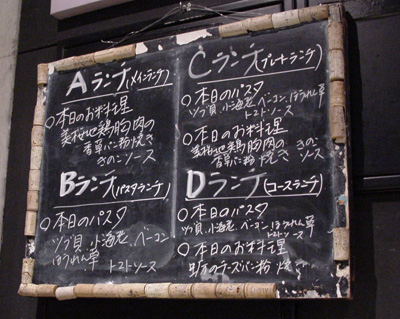 Aランチ(メインランチ)
○本日のお料理
美桜地鶏胸肉の
香草パン粉焼き
きのこソース
Bランチ(パスタランチ)
○本日のパスタ
ツブ貝、小海老、ベーコン
ほうれん草
トマトソース
Cランチ(プレートランチ)
○本日のパスタ
ツブ貝、小海老、ベーコン、ほうれん草
トマトソース
○本日のお料理
美桜地鶏胸肉の
香草パン粉焼き きのこ
ソース
Dランチ(コースランチ)
○本日のパスタ
ツブ貝、小海老、ベーコン、ほうれん草
トマトソース
○本日のお料理
のチーズパン粉焼